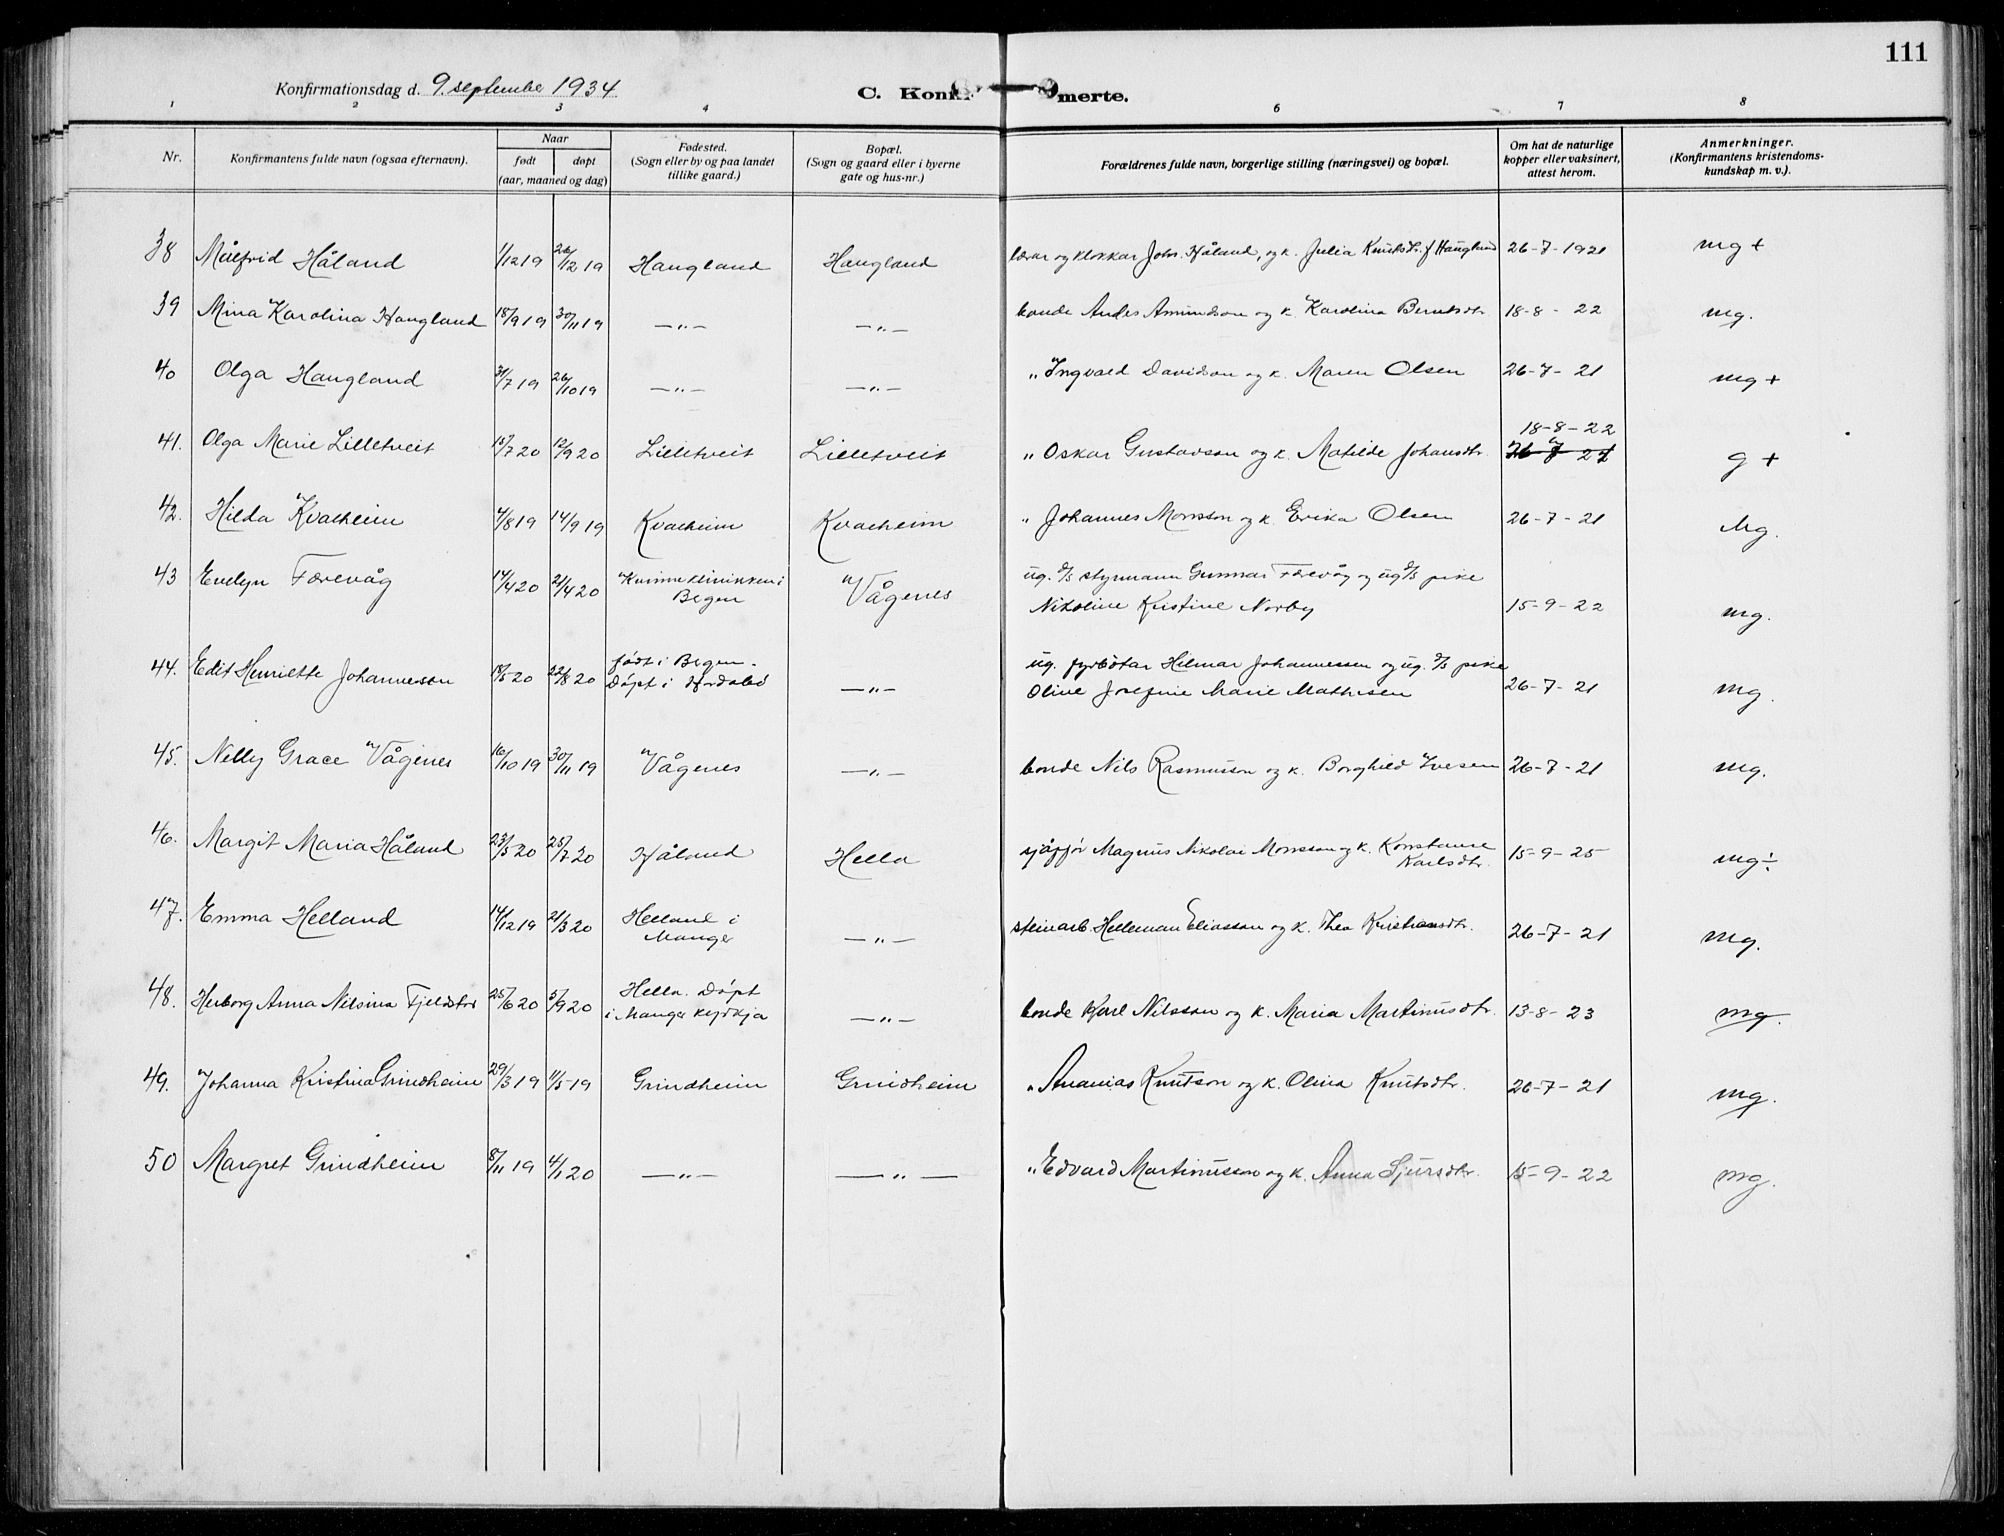 111
Konfirmationsdag d. 9. september 1934
C. Konfi merte.
1 2 3 4 6 7 8
Nr. Konfirmantens fulde navn (ogsaa efternavn). Naar født døpt (aar, maaned og dag) Fødested. (Sogn eller by og paa landet tillike gaard.) Bopæl. (Sogn og gaard eller i byerne gate og hus-nr.) Forældrenes fulde navn, borgerlige stilling (næringsvei) og bopæl. Om hat de naturlige kopper eller vaksinert, attest herom. Anmerkninger. (Konfirmantens kristendoms-kundskap m. v.).
38 Målfrid Håland 1/12 19 26/12 19 Haugland Haugland lærar og klokkar Johs. Håland, og k. Julia Knutsdr. f Haugland 26-7-1921 mg +
39 Mina Karolina Haugland 18/9 19 30/11 19 —„— —„— bonde Andes Amundson og k. Karolina Berntsdtr. 18-8-22 mg.
40 Olga Haugland 31/7 19 26/10 19 —„— —„— „ Ingvald Davidson og k. Maren Olsen 26-7-21 mg +
41. Olga Marie Lilletveit 15/7 20 12/9 20 Lilletveit Lilletveit „ Oskar Gustavson og k. Matilde Johansdtr. 18-8-22 26-7-21 g +
42. Hilda Kvalheim 4/8 19 14/9 19 Kvalheim Kvalheim „ Johannes Monsson og k. Erika Olsen 26-7-21 Mg.
43 Evelyn Færevåg 14/4 20 21/4 20 Kvinneklinikken i Bergen Vågenes ug. styrmann Gunnar Færevåg og ug. pike
Nikoline Kristine Norby 15-9-22 mg.
44. Edit Henriette Johannesson 18/5 20 22/8 20 født i Bergen. Døpt i —„— ug. fyrbøtar Hilmar Johannessen og ug. pike
Oline Josefine Marie Mathisen 26-7-21 mg.
45. Nelly Grace Vågenes 16/10 19 30/11 19 Vågenes —„— bonde Nils Rasmusson og k. Borghild Iversen 26-7-21 mg.
46. Margit Maria Håland 23/5 20 25/7 20 Håland Hella sjåfør Magnus Nikolai Monsson og k. Konstanse Karlsdtr. 15-9-25 mg÷
47. Emma Helland 14/12 19 21/3 20 Helland i Manger —„— steinarb. Helleman Eliasson og k. Thea Kristiansdtr. 26-7-21 mg.
48. Herborg Anna Nilsina Fjeldstad 25/6 20 5/9 20 Hella. Døpt i Manger kyrkja —„— bonde Karl Nilsson og k. Maria Martinusdtr. 13-8-23 mg.
49. Johanna Kristina Grindheim 29/3 19 11/5 19 Grindheim Grindheim „ Ananias Knutson og k. Olina Knutsdtr. 26-7-21 mg.
50 Margret Grindheim 8/11 19 4/1 20 —„— —„— „ Edvard Martinusson og k. Anna Sjursdtr. 15-9-22 mg.